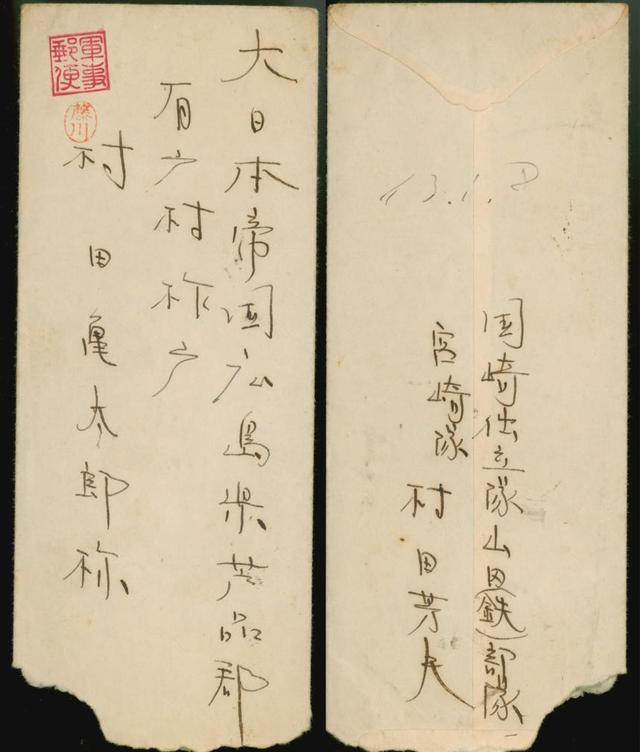 軍事
郵便
藤川
大日本帝国広島県芦品郡
有广村柞广
村田亀太郎様
13.1.8
国崎仕立隊山田(鉄)部隊
宮崎隊 村田芳夫